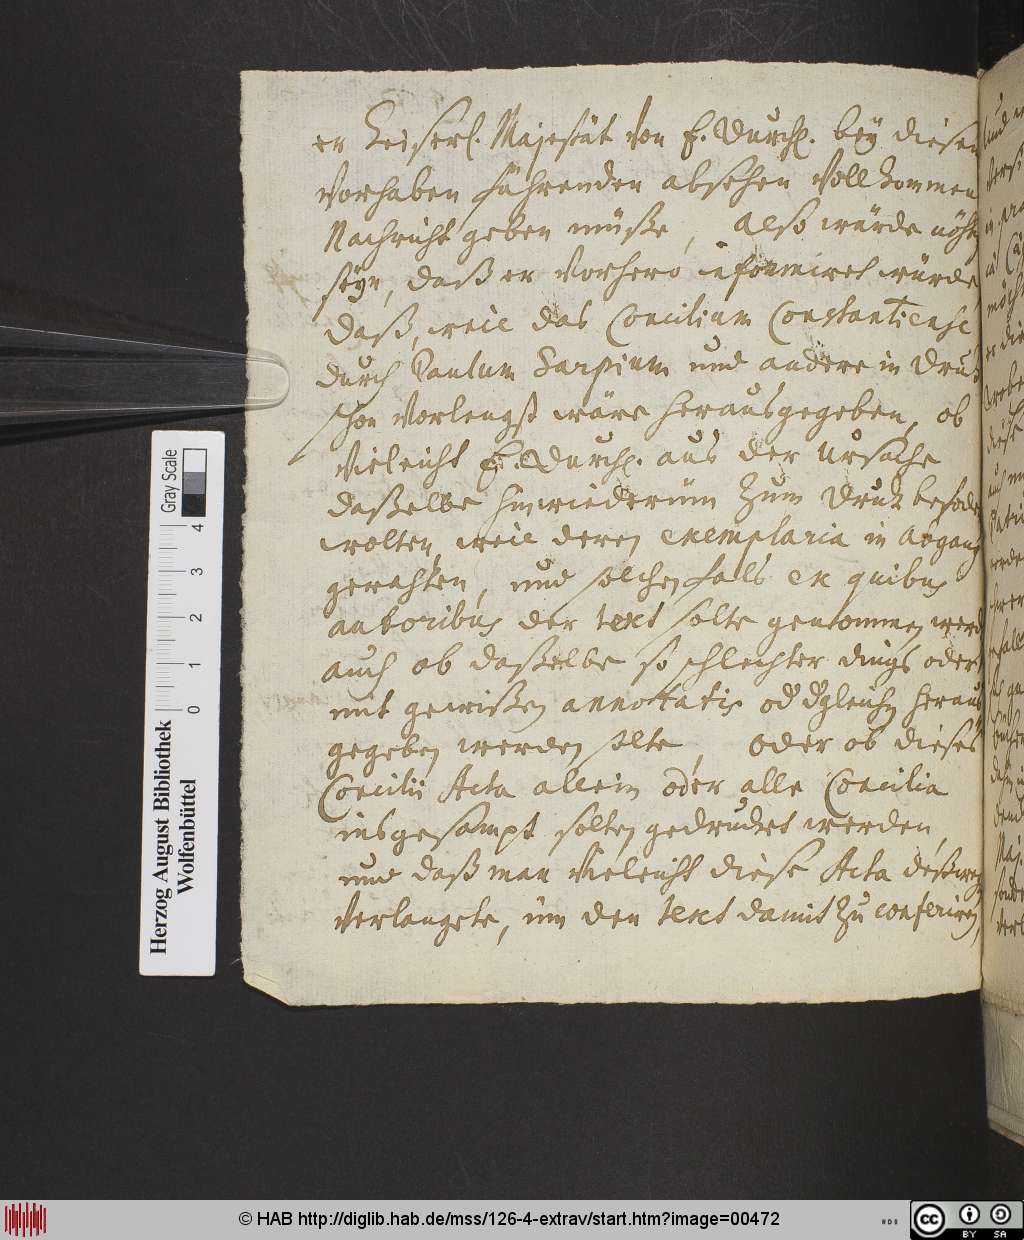 er Keiserl. Majestät von E. Durchl. bey diesen
vorhaben führenden absehen vollkommen
Nachricht geben müße, alß würde nöht
seyn, daß er vorhero informiret würde
daß, weil das Concilium Constantiense
durch Paulum Sarpium und andere in Druk
schon vorlengst wäre herausgegeben, ob
vieleicht E. Durchl. aus der ursache
daßelbe hinwiederüm zum Druk befode
wolten, weil deren exemplaria in abgang
gerahten, und solchen fals ex quibus
autoribus der text solte genommen werd
auch ob daßelbe so schlechter dings oder
mit gewißen annotatis od dgleichen heraus
gegeben werden solte, oder ob dieses
Concilii Acta allein oder alle Concilia
insgesampt solten gedrudet werden,
und daß man vieleicht diese Acta deßweg
verlangete, üm den text damit zu conferiren,
Herzog August Bibliothek
Wolfenbüttel
0 1 2 3 4
Gray Scale
© HAB http://diglib.hab.de/mss/126-4-extrav/start.htm?image=00472
cc BY SA